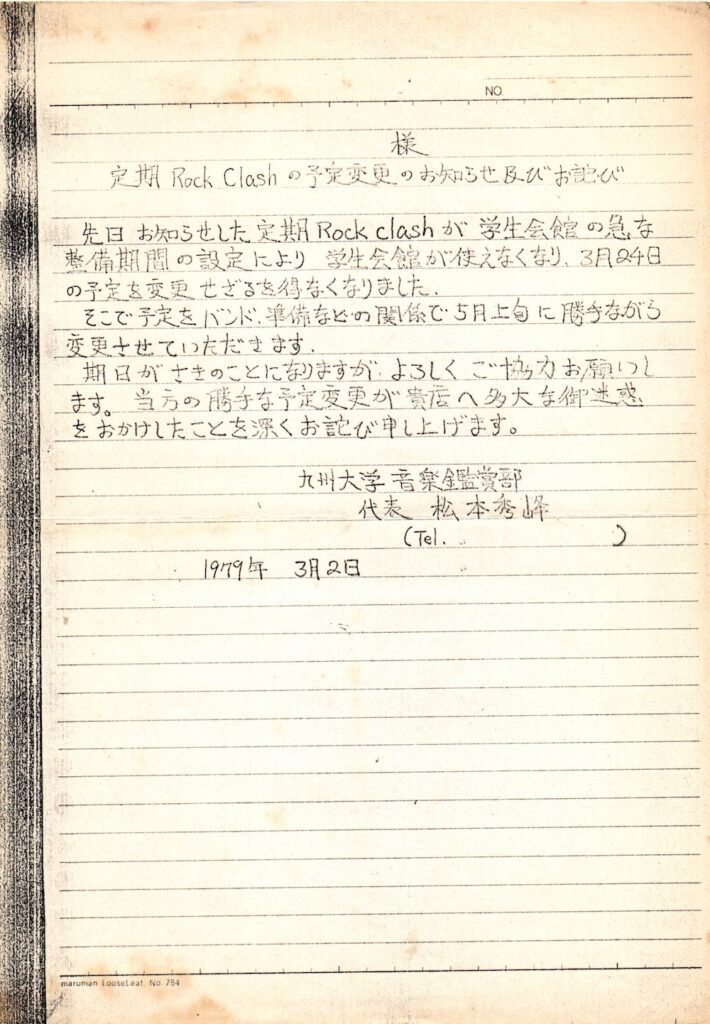 NO
様
定期 Rock Clash の予定変更のお知らせ及びお詫び
先日 お知らせした 定期 Rock clash が 学生会館 の 急な
整備期間 の 設定により 学生会館が使えなくなり、3月24日
の予定を変更 せざるを得なくなりました.
そこで予定をバンド、準備などの関係で5月上旬に勝手ながら
変更させていただきます.
期日が さきのことになりますが、よろしく ご協力お願いし
ます。当方の勝手な予定変更が貴店へ多大な御迷惑
をおかけしたことを深くお詫び申し上げます。
九州大学 音楽鑑賞部
代表 松本秀峰
(Tel. )
1979年 3月2日
maruman LooseLeaf No 784